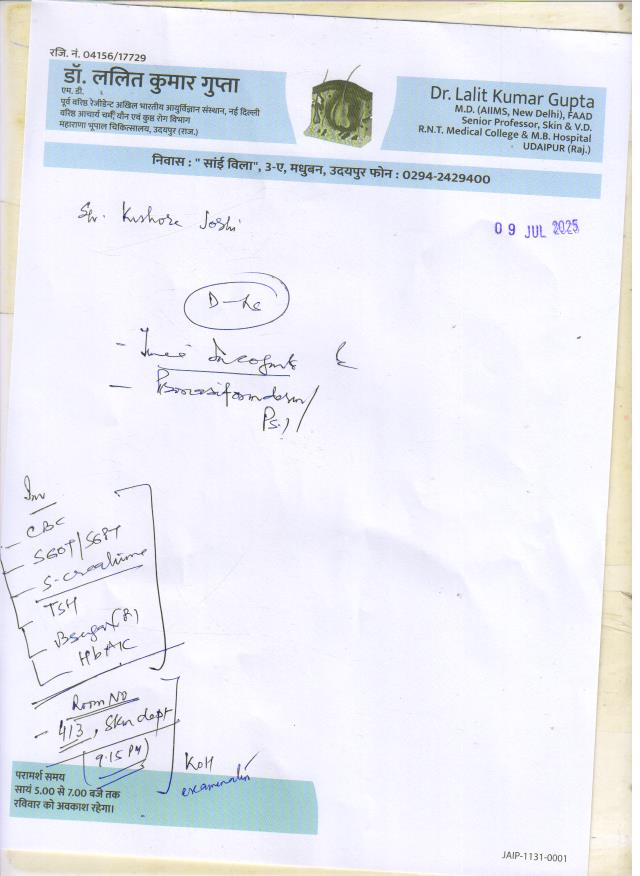 रजि. नं. 04156/17729
डॉ. ललित कुमार गुप्ता
एम. डी.
पूर्व वरिष्ठ रेजीडेन्ट अखिल भारतीय आयुर्विज्ञान संस्थान, नई दिल्ली
वरिष्ठ आचार्य चर्म, यौन एवं कुष्ठ रोग विभाग
महाराणा भूपाल चिकित्सालय, उदयपुर (राज.)
Dr. Lalit Kumar Gupta
M.D. (AIIMS, New Delhi), FAAD
Senior Professor, Skin & V.D.
R.N.T. Medical College & M.B. Hospital
UDAIPUR (Raj.)
निवास : " सांई विला", 3-ए, मधुबन, उदयपुर फोन : 0294-2429400
Kishore Joshi
09 JUL 2025
Inv
CBC
SGOT/SGPT
S. creatinine
TSH
B sugar (R)
HbA1C
Room No
- 413, Skin dept
(9.15 PM)
KOH
examination
परामर्श समय
सायं 5.00 से 7.00 बजे तक
रविवार को अवकाश रहेगा।
JAIP-1131-0001